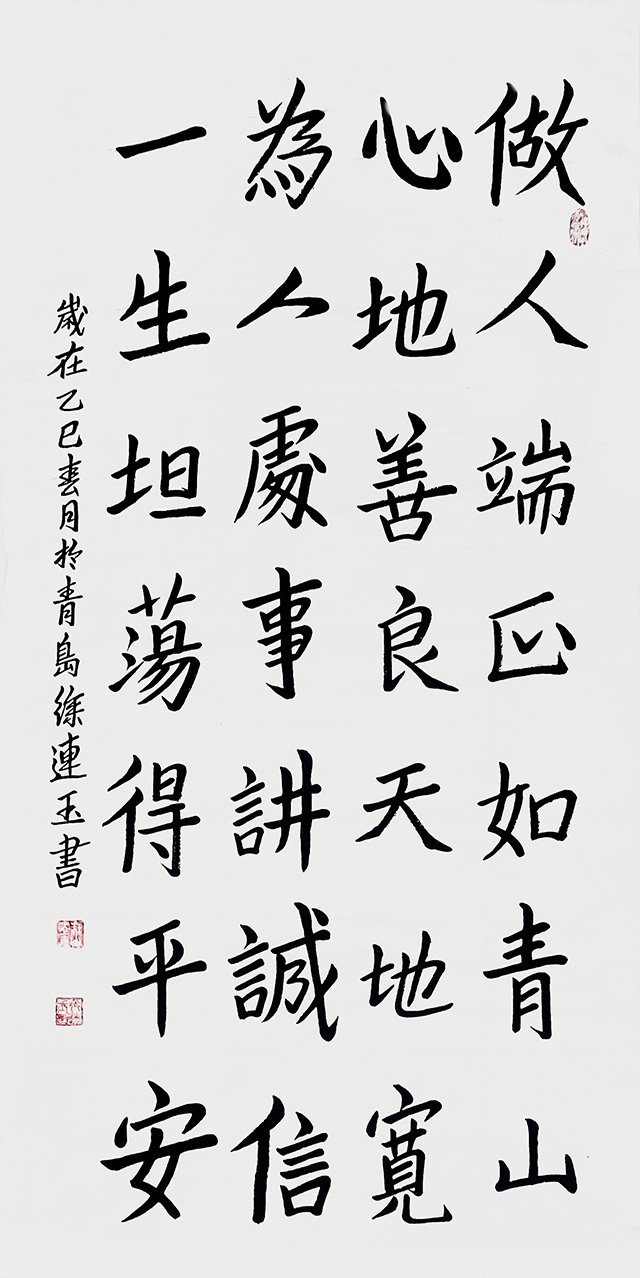 做人端正如青山
心地善良天地寬
為人處事讲誠信
一生坦蕩得平安
歲在乙巳春月於青島徐連玉書